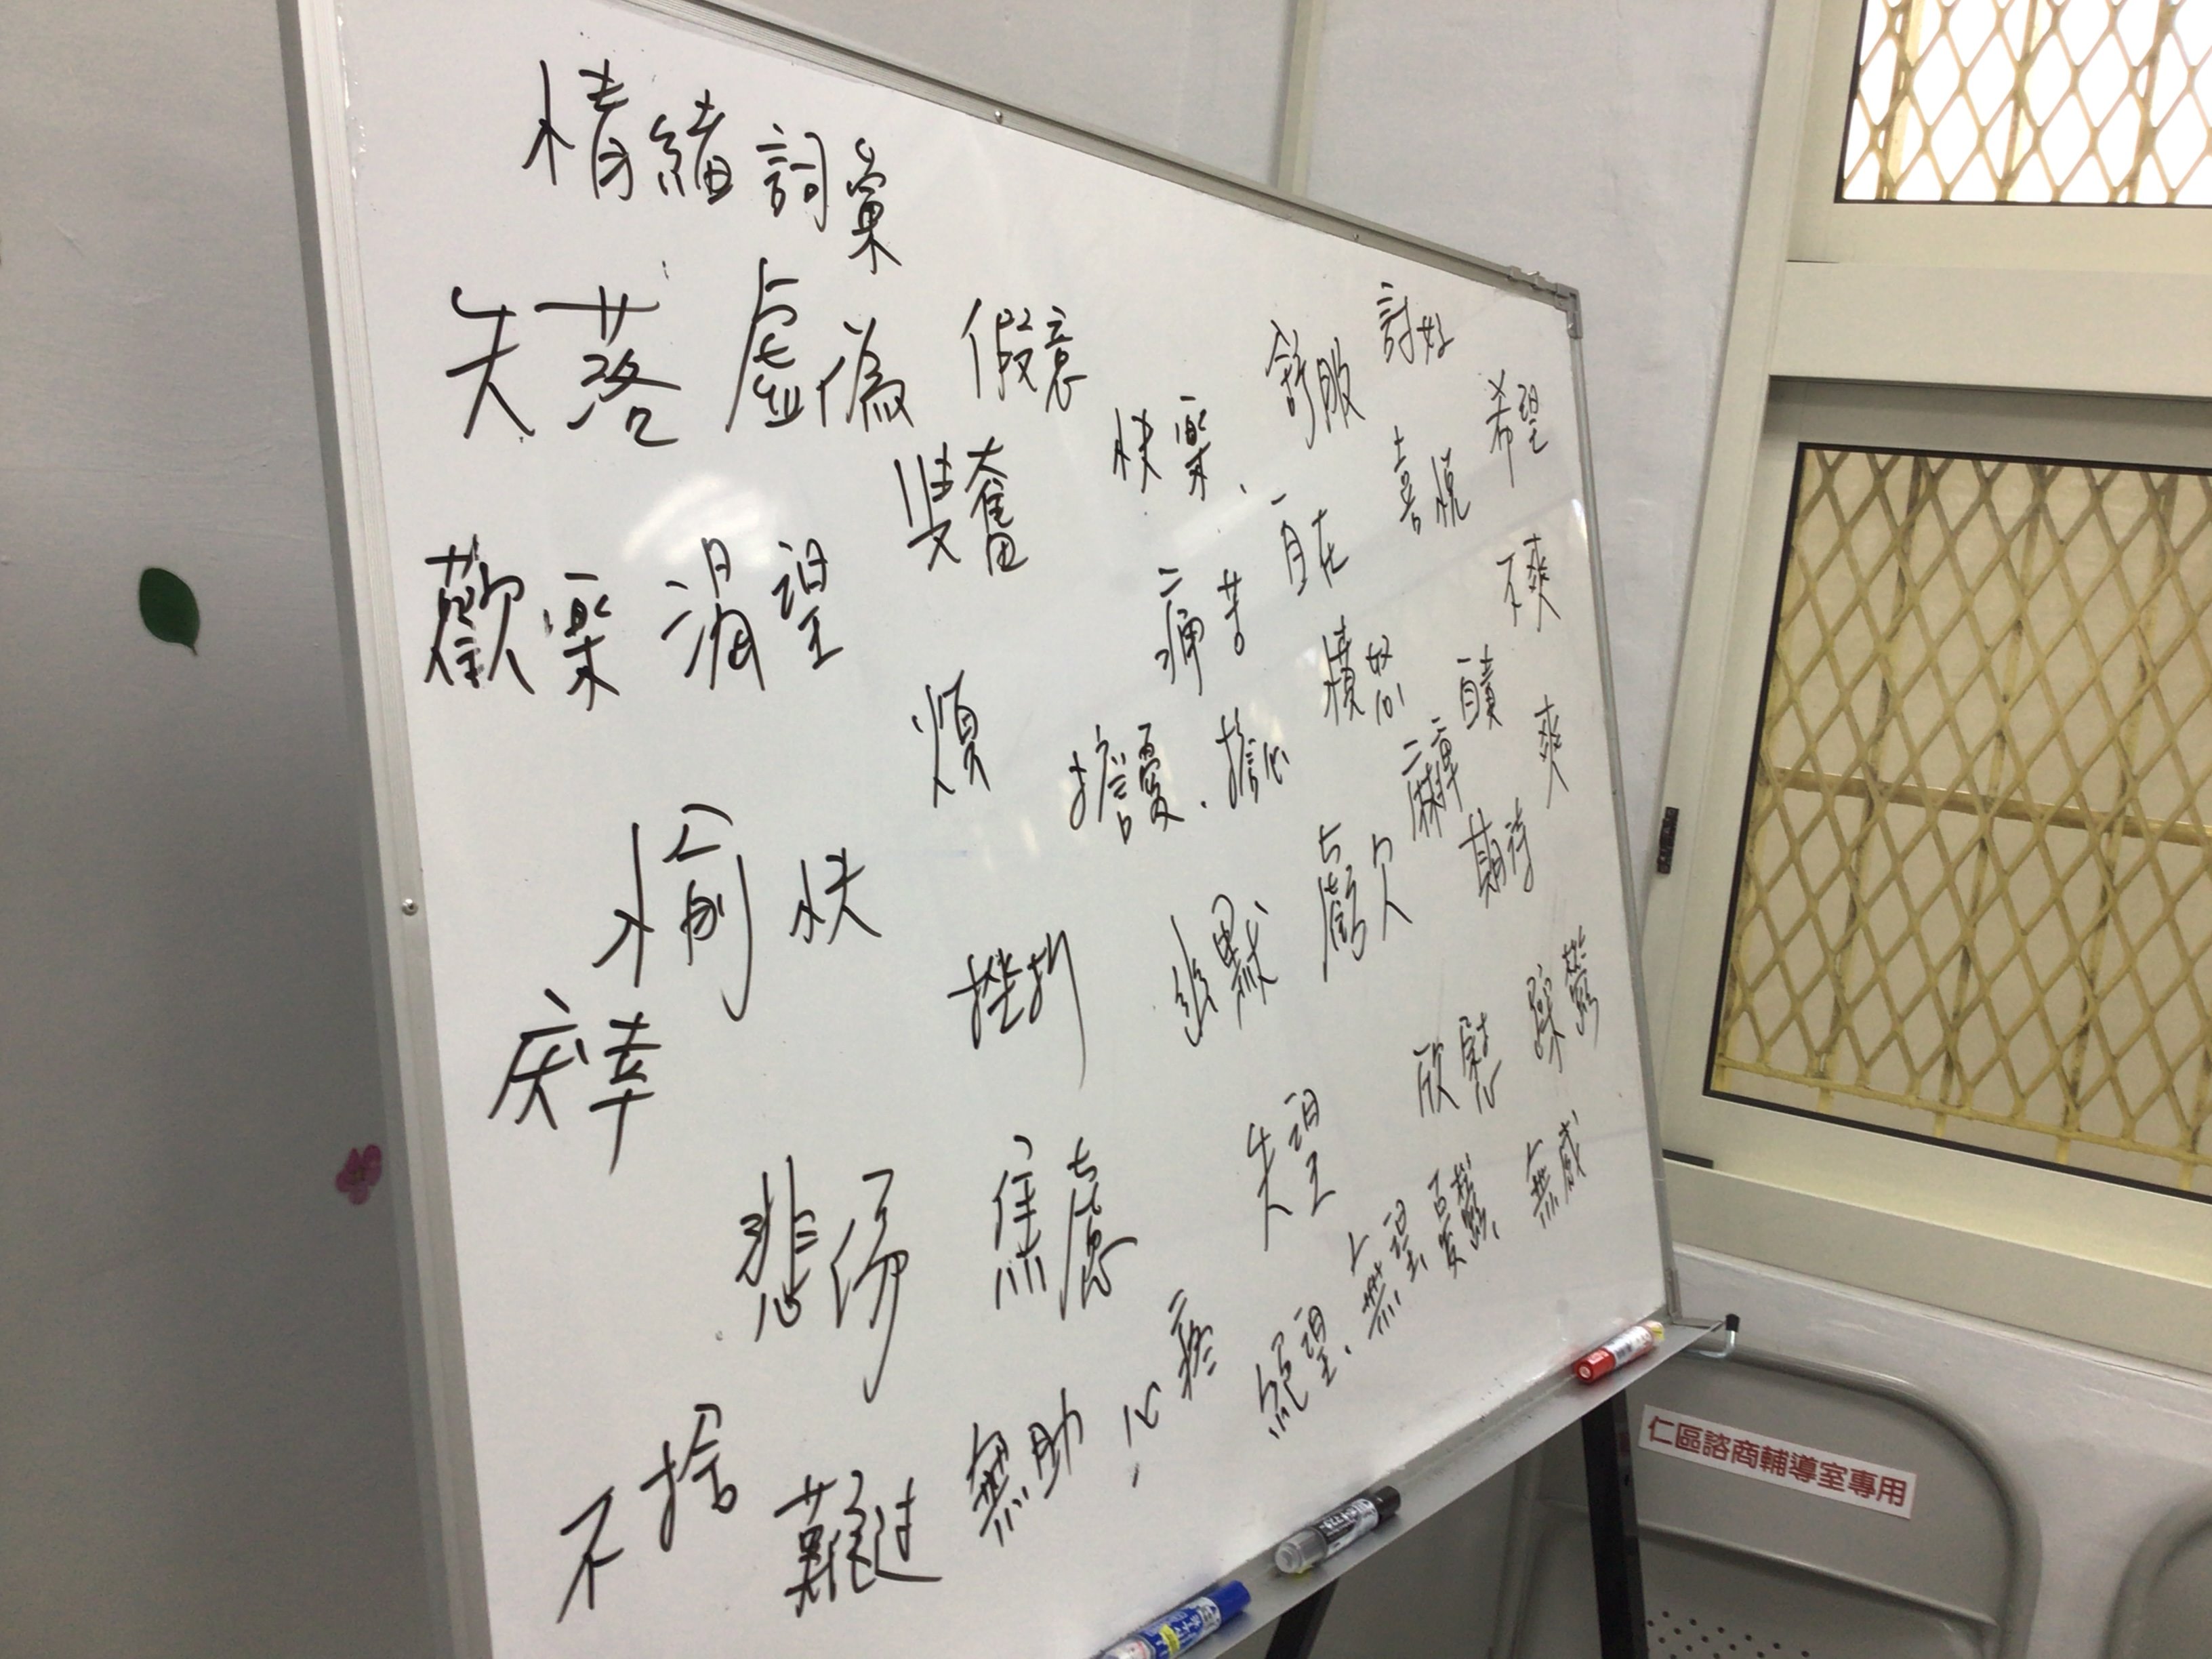 情緒詞彙
失落 虛偽 假意 快樂、舒服 討好
興奮 自在 喜悅 希望
歡樂 渴望 痛苦 憤怒 不爽
煩 擔憂、擔心 自責 爽
愉快 虧欠 麻痺 期待
慶幸 挫折 幽默
悲傷 焦慮 失望 欣慰 躁鬱
不捨 難過 無助 心疼 絕望、無望、憂鬱、無感
仁區諮商輔導室專用